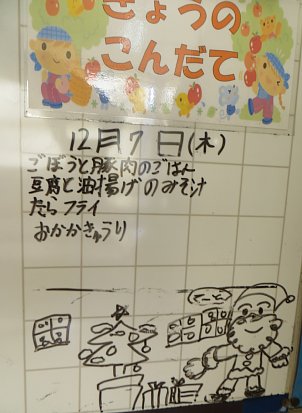 きょうの
こんだて
12月7日(木)
ごぼうと豚肉のごはん
豆腐と油揚げのみそ汁
たらフライ
おかかきゅうり